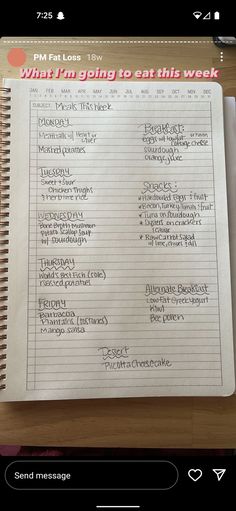 7:25
PM Fat Loss 18w
What I'm going to eat this week
JAN FEB MAR APR MAY JUN JUL AUG SEP OCT NOV DEC
SUBJECT: Meals This Week
MONDAY
Meatballs w/ Heart or Liver
Mashed potatoes
TUESDAY
Sweet & Sour
Chicken Thighs
& herbime rice
WEDNESDAY
Bone Broth
Potato Scallop Soup
w/ sourdough
THURSDAY
World's Best Fish (sole)
roasted potatoes
FRIDAY
Barbacoa
Plantains (tostones)
Mango salsa
Breakfast:
Eggs w/ lowfat cottage cheese
sourdough
orange juice
Snacks:
* Hardboiled Eggs & fruit
* Bacon, Turkey, Tomato & fruit
* Tuna on sourdough
* Oysters on crackers
* Raw Carrot Salad
w/ lime,
Alternate Breakfast
Low Fat Greek yogurt
Kiwi
Bee pollen
Dessert
Ricotta Cheesecake
Send message